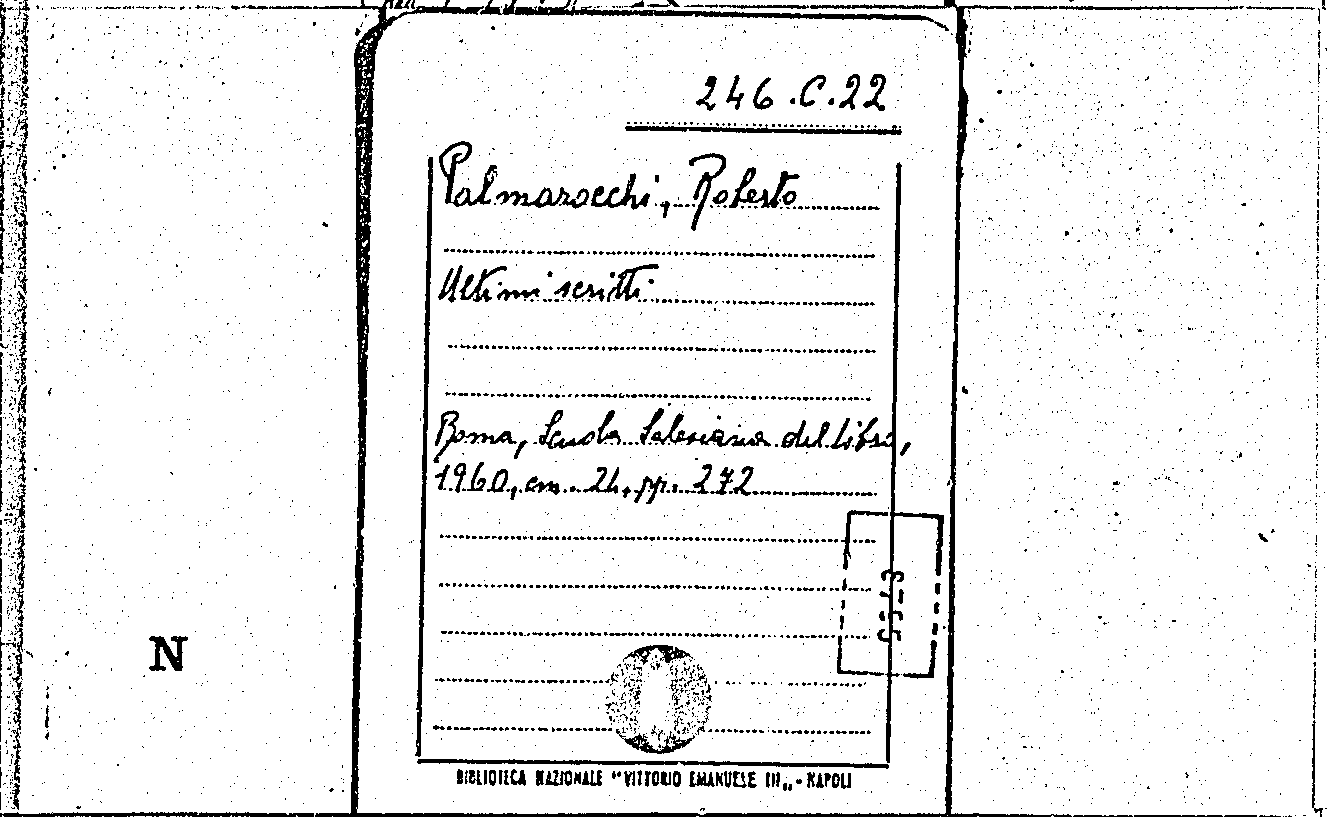 246.C.22
Palmarocchi, Roberto
Ultimi scritti
Roma, Scuola Salesiana del Libro,
1960, cm. 24, pp. 272
N
BIBLIOTECA NAZIONALE "VITTORIO EMANUELE III„ - NAPOLI